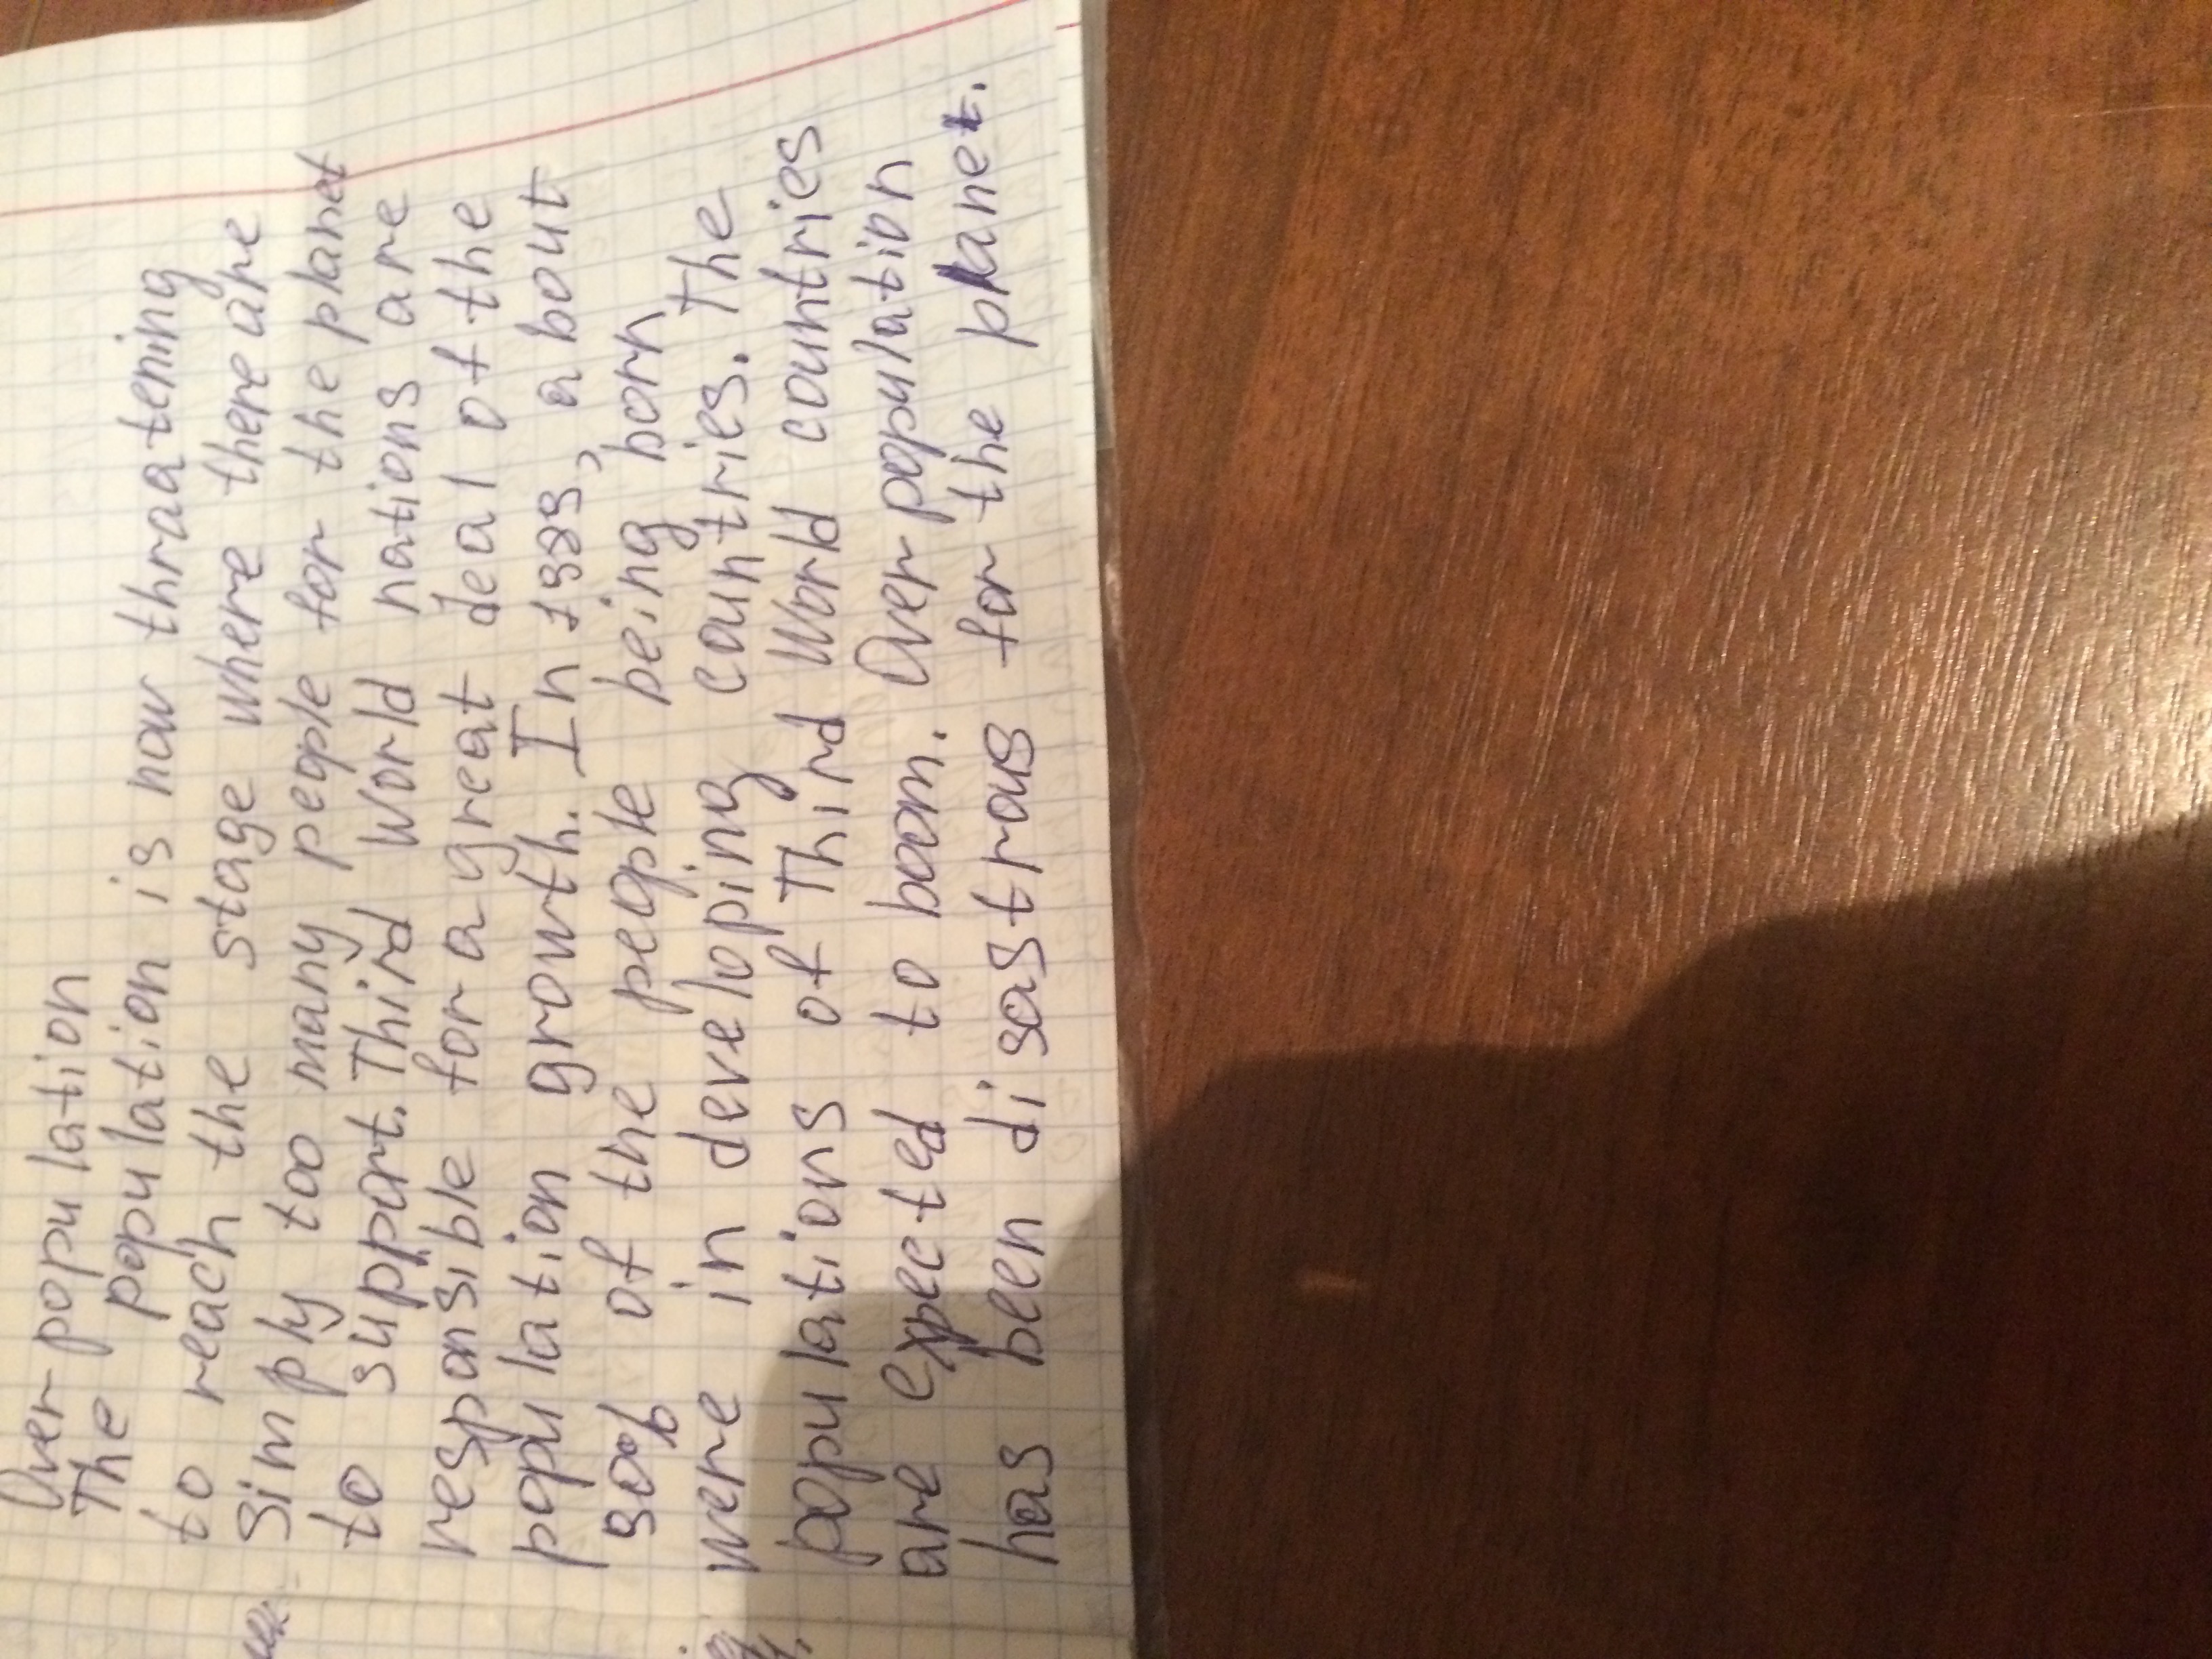 Overpopulation
The population is now thraatening
to reach the stage where there are
simply too many people for the planet
to support. Third World nations are
responsible for a great deal of the
population growth. In 1999, about
90% of the people being born
were in developing countries. The
populations of Third World countries
are expected to boom. Overpopulation
has been disastrous for the planet.